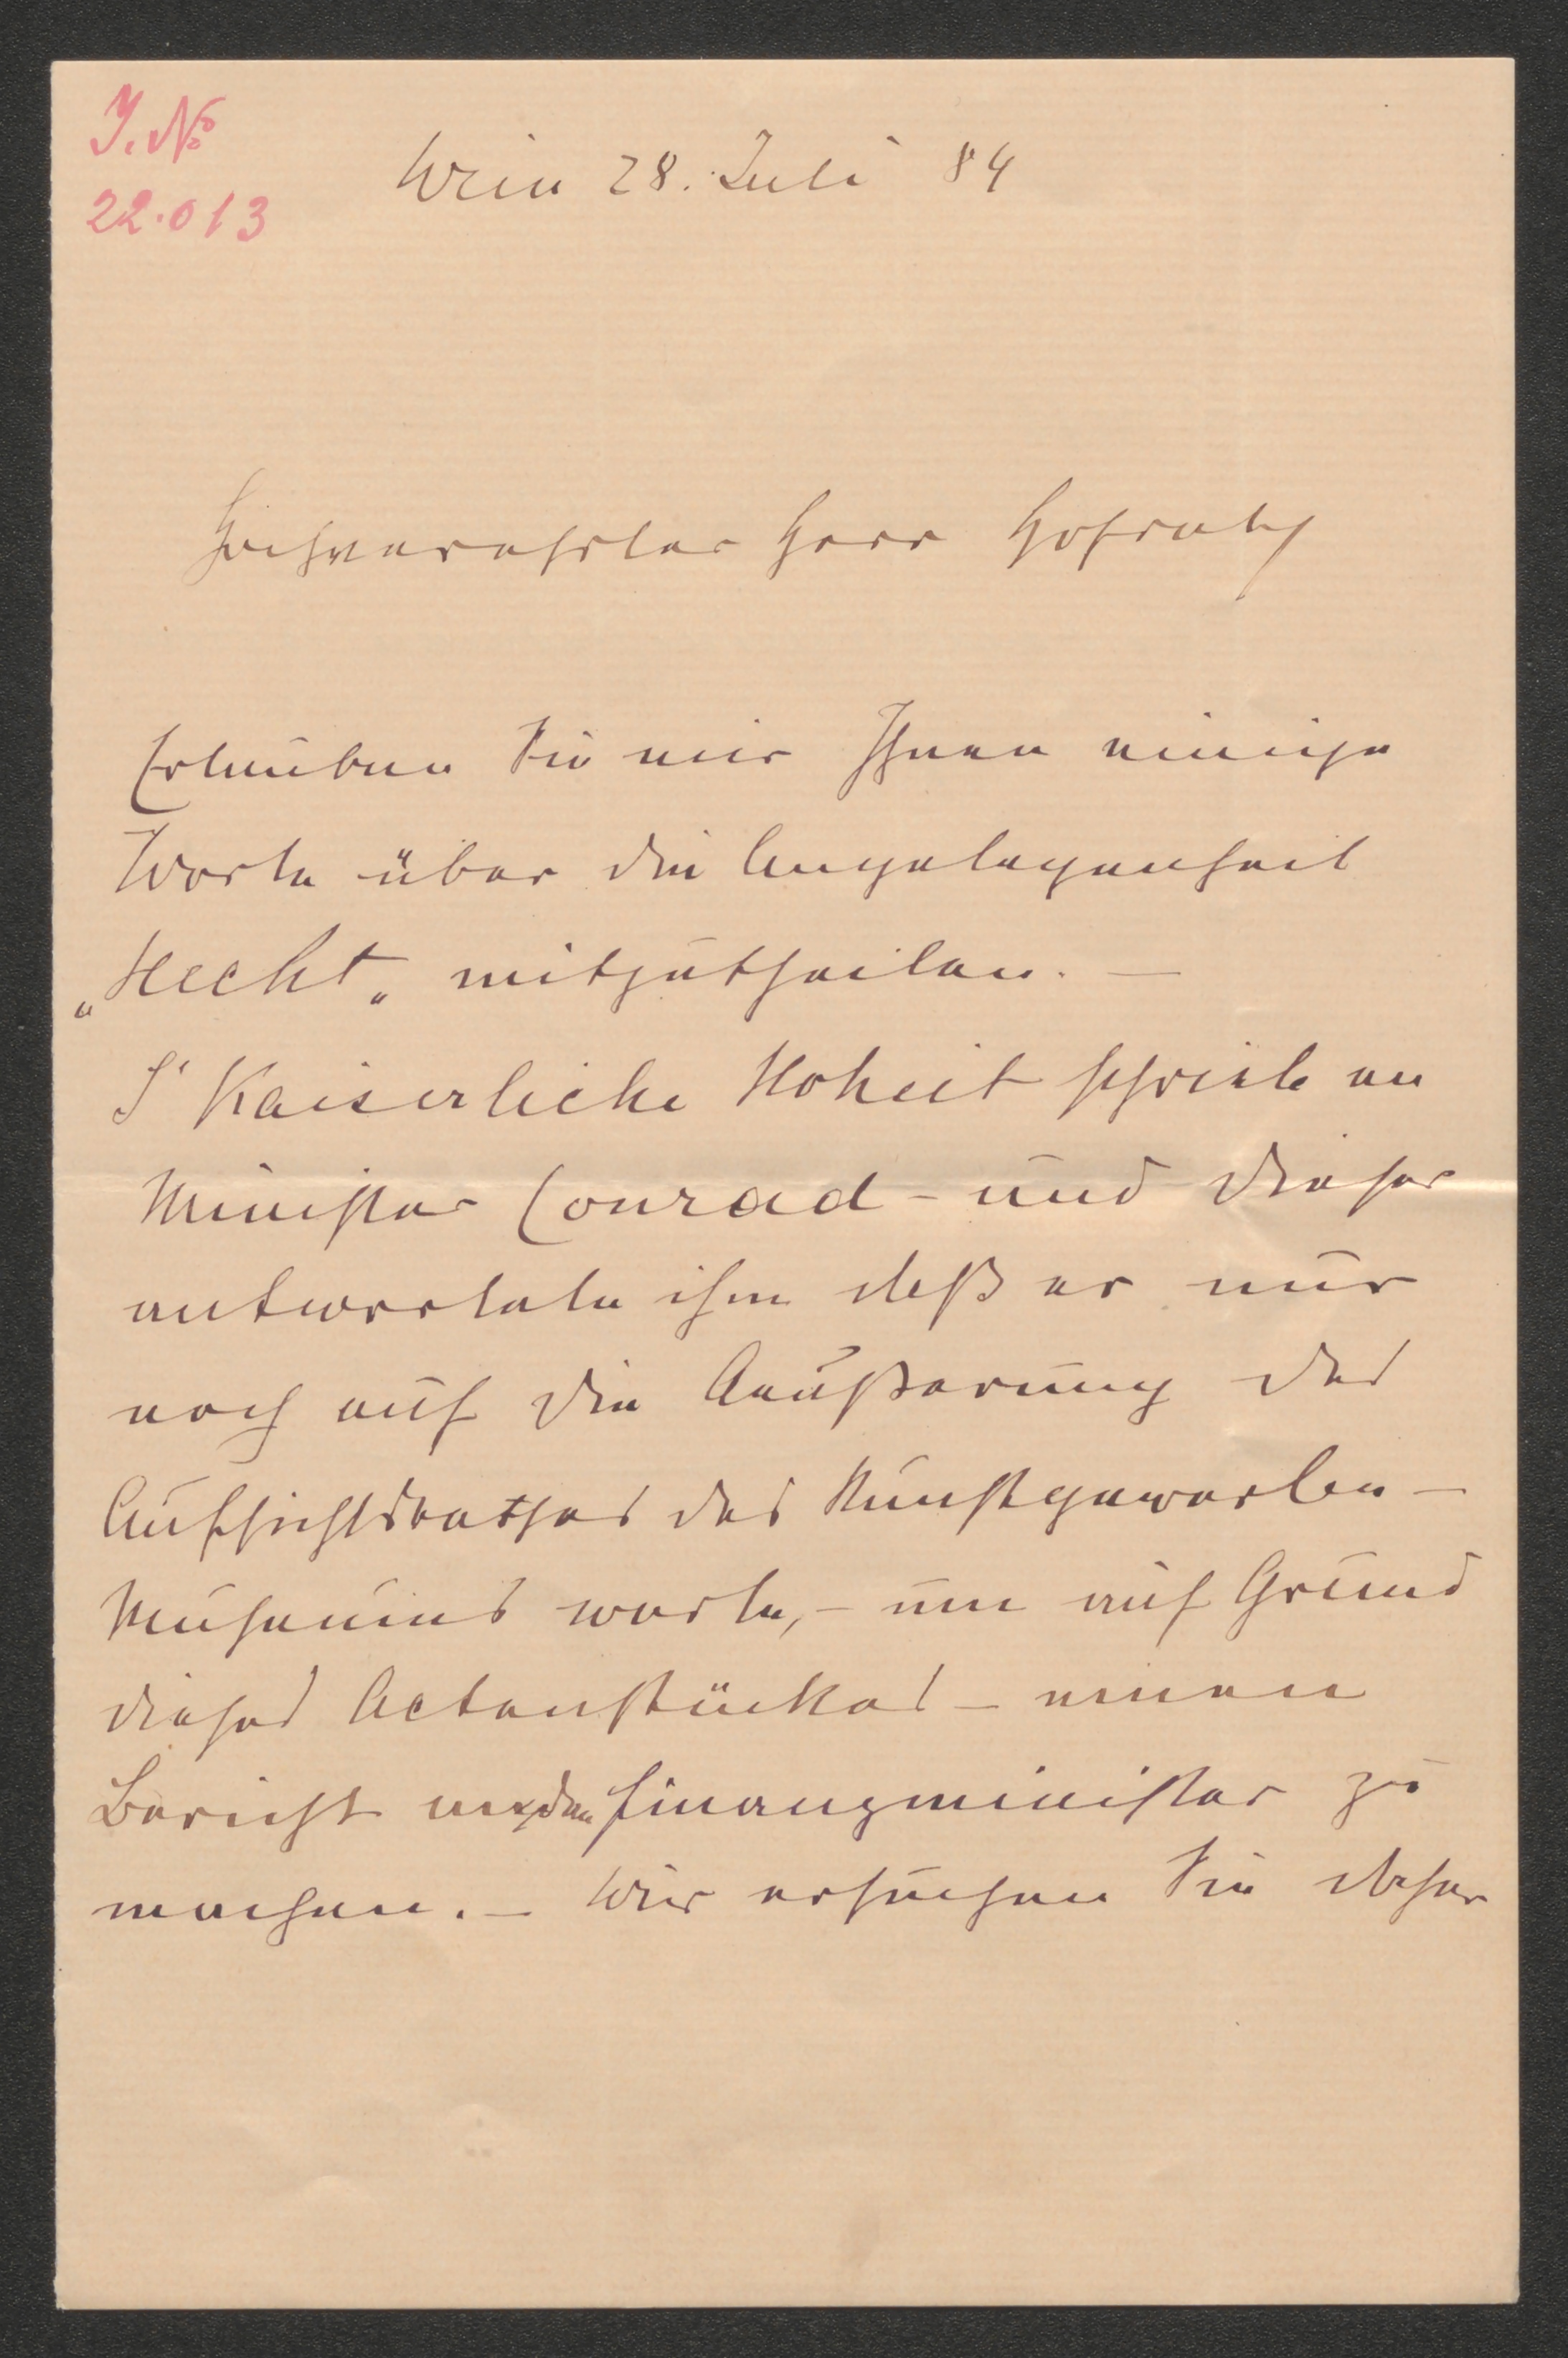 J. №
22.013
Wien 28. Juli 84
Hochverehrter Herr Hofrath
Erlauben Sie mir Ihnen einige
Worte über die Angelegenheit
„Hecht„ mitzutheilen. —
S' Kaiserliche Hoheit schrieb an
Minister Conrad – und dieser
antwortete ihm daß er nur
noch auf die Aeußerung des
Aufsichtsrathes des Kunstgewerbe –
Museums warte, – um auf Grund
dieses Actenstückes – einen
Bericht an den Finanzminister zu
machen. – Wir ersuchen Sie daher